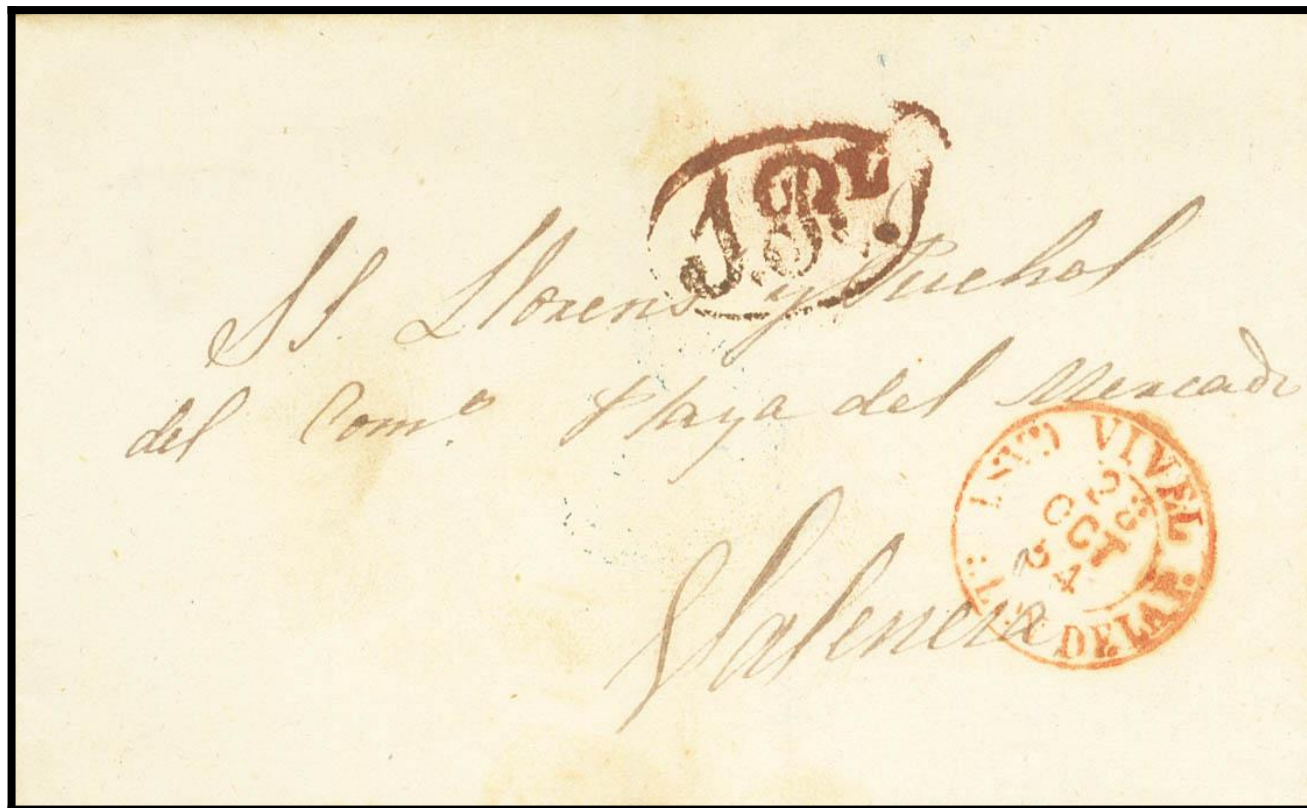 J. R.
SS. Llorens y Puchol
del Com.º Plaza del Mercado
Valencia
VIVEL
28
OCT
54
DE LA R.